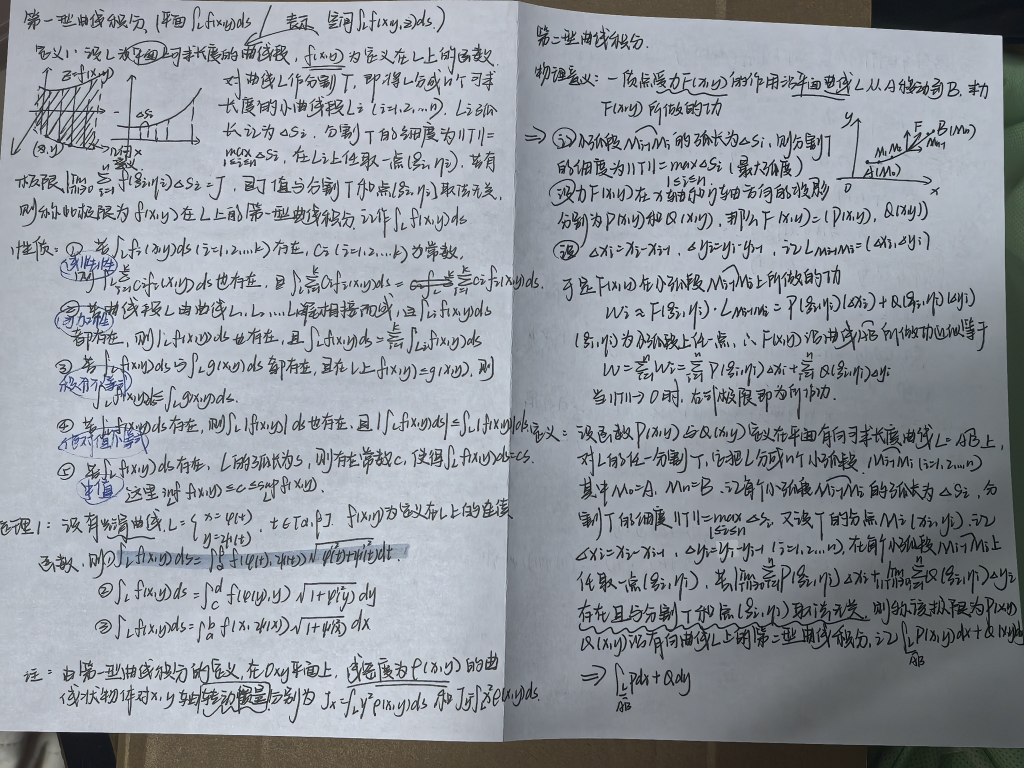 第一型曲线积分. (平面∫_L f(x,y)ds / 表示 空间∫_L f(x,y,z)ds.)
定义1: 设L为平面上可求长度的曲线段, f(x,y)为定义在L上的函数.
z=f(x,y)
(x,y)
ΔSi
对曲线L作分割T, 即得L分成n个可求
长度的小曲线段Li (i=1,2,…n). Li的弧
长记为ΔSi, 分割T的细度为||T||=
max_{1≤i≤n} ΔSi, 在Li上任取一点(ξi,ηi), 若有
极限 lim_{||T||→0} Σ_{i=1}^n f(ξi,ηi)ΔSi=J, 且J值与分割T和点(ξi,ηi)取法无关,
则称此极限为f(x,y)在L上的第一型曲线积分. 记作∫_L f(x,y)ds
性质: ① 若∫_L fi(x,y)ds (i=1,2,…k)存在, Ci (i=1,2,…k)为常数.
线性性
则∫_L Σ_{i=1}^k Ci fi(x,y)ds也存在, 且∫_L Σ_{i=1}^k Ci fi(x,y)ds = Σ_{i=1}^k Ci∫ fi(x,y)ds.
② 若曲线段L由曲线L1,L2,…Lk首尾相接而成, 且∫_{Li} f(x,y)ds
可加性
都存在, 则∫_L f(x,y)ds也存在, 且∫_L f(x,y)ds=Σ_{i=1}^k ∫_{Li} f(x,y)ds
③ 若∫_L f(x,y)ds与∫_L g(x,y)ds都存在, 且在L上f(x,y)≤g(x,y), 则
积分不等式
∫_L f(x,y)ds≤∫_L g(x,y)ds.
④ 若∫_L f(x,y)ds存在, 则∫_L |f(x,y)|ds也存在, 且|∫_L f(x,y)ds|≤∫_L |f(x,y)|ds.
绝对值不等式
⑤ 若∫_L f(x,y)ds存在, L的弧长为s, 则存在常数c, 使得∫_L f(x,y)ds=cs.
中值
这里 inf_L f(x,y)≤c≤sup_L f(x,y).
定理1: 设有光滑曲线L={x=φ(t) y=ψ(t), t∈[α,β]. f(x,y)为定义在L上的连续
函数, 则①∫_L f(x,y)ds=∫_α^β f(φ(t),ψ(t))√(φ'²(t)+ψ'²(t))dt
②∫_L f(x,y)ds=∫_c^d f(φ(y),y)√(1+φ'²(y)) dy
③∫_L f(x,y)ds=∫_a^b f(x,ψ(x))√(1+ψ'²(x)) dx
注: 由第一型曲线积分的定义, 在Oxy平面上, 线密度为ρ(x,y)的曲
线状物体对x,y轴的转动惯量分别为 Jx=∫_L y²ρ(x,y)ds 和 Jy=∫_L x²ρ(x,y)ds.
第二型曲线积分.
物理意义: 一质点受力F(x,y)的作用沿平面曲线L从A移动到B. 求力
F(x,y)所做的功
y
F
B(Mn)
M1 M2
Mi-1
A(M0)
0
x
⇒ ① 小弧段Mi-1Mi的弧长为ΔSi, 则分割T
的细度为||T||=max_{1≤i≤n} ΔSi (最大的弧度)
设力F(x,y)在x轴和y轴方向的投影
分别为P(x,y)和Q(x,y), 那么F(x,y)=(P(x,y), Q(x,y))
② 设 Δxi=xi-xi-1, Δyi=yi-yi-1, 记L_{Mi-1Mi}=(Δxi,Δyi)
于是F(x,y)在小弧段Mi-1Mi上所做的功
Wi≈F(ξi,ηi)·L_{Mi-1Mi}=P(ξi,ηi)(Δxi)+Q(ξi,ηi)(Δyi)
(ξi,ηi)为小弧段上任一点, ∴F(x,y)沿曲线AB所做功近似等于
W=Σ_{i=1}^n Wi≈Σ_{i=1}^n P(ξi,ηi)Δxi+Σ_{i=1}^n Q(ξi,ηi)Δyi
当||T||→0时, 右的极限即为所求功.
定义: 设函数P(x,y)与Q(x,y)定义在平面有向可求长度曲线L=AB上,
对L的任一分割T, 它把L分成n个小弧段. Mi-1Mi (i=1,2,…n)
其中M0=A, Mn=B. 记每个小弧段Mi-1Mi的弧长为ΔSi, 分
割T的细度||T||=max_{1≤i≤n} ΔSi 又设T的分点Mi(xi,yi). 记
Δxi=xi-xi-1, Δyi=yi-yi-1 (i=1,2,…n). 在每个小弧段Mi-1Mi上
任取一点(ξi,ηi), 若lim_{||T||→0} Σ_{i=1}^n P(ξi,ηi)Δxi+lim_{||T||→0} Σ_{i=1}^n Q(ξi,ηi)Δyi
存在且与分割T和点(ξi,ηi)取法无关, 则称该极限为P(x,y)
Q(x,y)沿有向曲线L上的第二型曲线积分. 记∫_{AB} P(x,y)dx+Q(x,y)dy
⇒ ∫_{L=AB} Pdx+Qdy